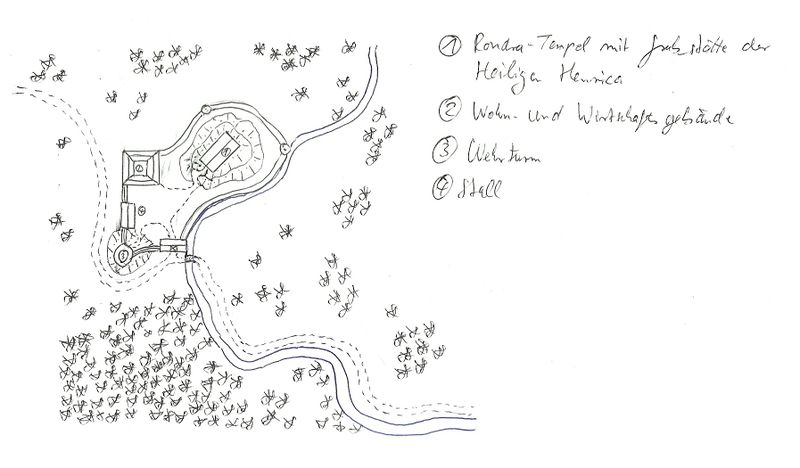 ① Rondra-Tempel mit Grabstätte der
Heiligen Henrica
② Wohn- und Wirtschaftsgebäude
③ Wehrturm
④ Stall
1
2
4
3